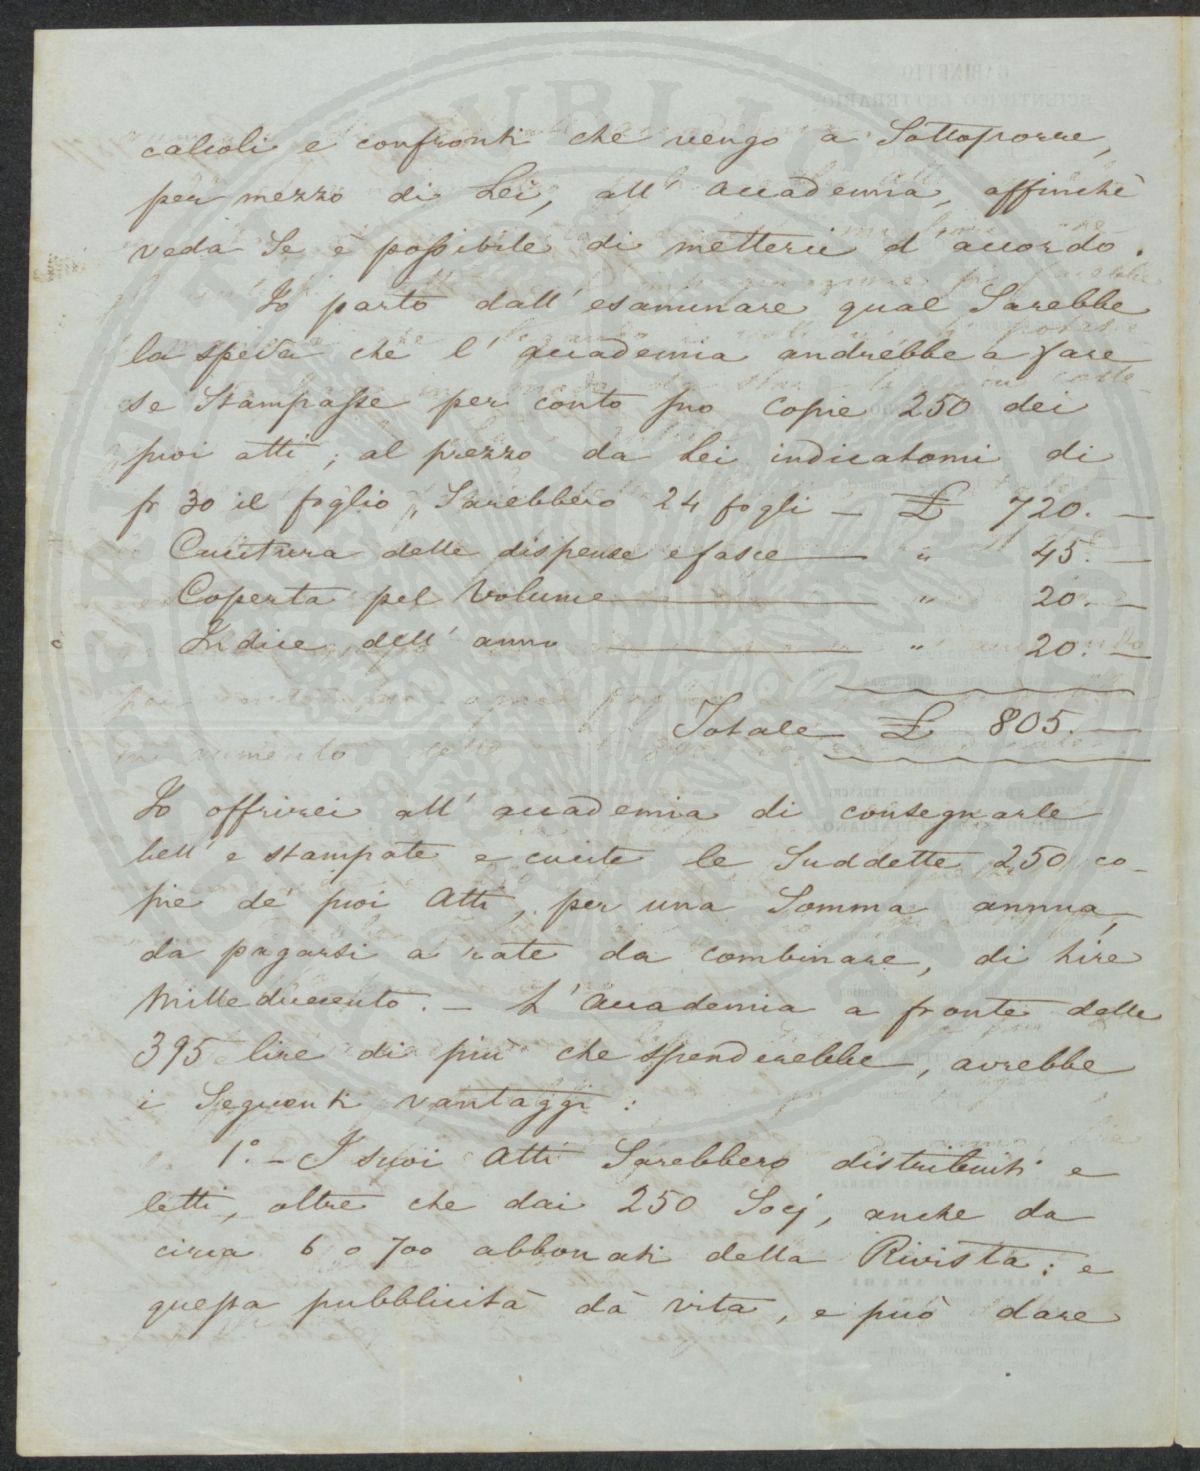 calcoli e confronti che vengo a Sottoporre,
per mezzo di Lei, all' accademia, affinchè
veda Se è possibile di metterci d'accordo.
Io parto dall'esaminare qual Sarebbe
la spesa che l'accademia andrebbe a fare
se Stampasse per conto suo Copie 250 dei
suoi atti; al prezzo da Lei indicatomi di
fr 30 il foglio, Sarebbero 24 fogli — £ 720. —
Cucitura delle dispense e fasce — " 45. —
Coperta pel Volume — " 20. —
Indice dell'anno — " 20. —
Totale £ 805. —
Io offrirei all'accademia di consegnarle
bell'e stampate e cucite le Suddette 250 co-
pie de' suoi Atti, per una Somma annua,
da pagarsi a rate da combinare, di Lire
Mille duecento. — L'Accademia a fronte delle
395 lire di più che spenderebbe, avrebbe
i Seguenti vantaggi:
1.° — I suoi Atti Sarebbero distribuiti e
letti, oltre che dai 250 Socj, anche da
circa 6 o 700 abbonati della Rivista: e
questa pubblicità dà vita, e può dare